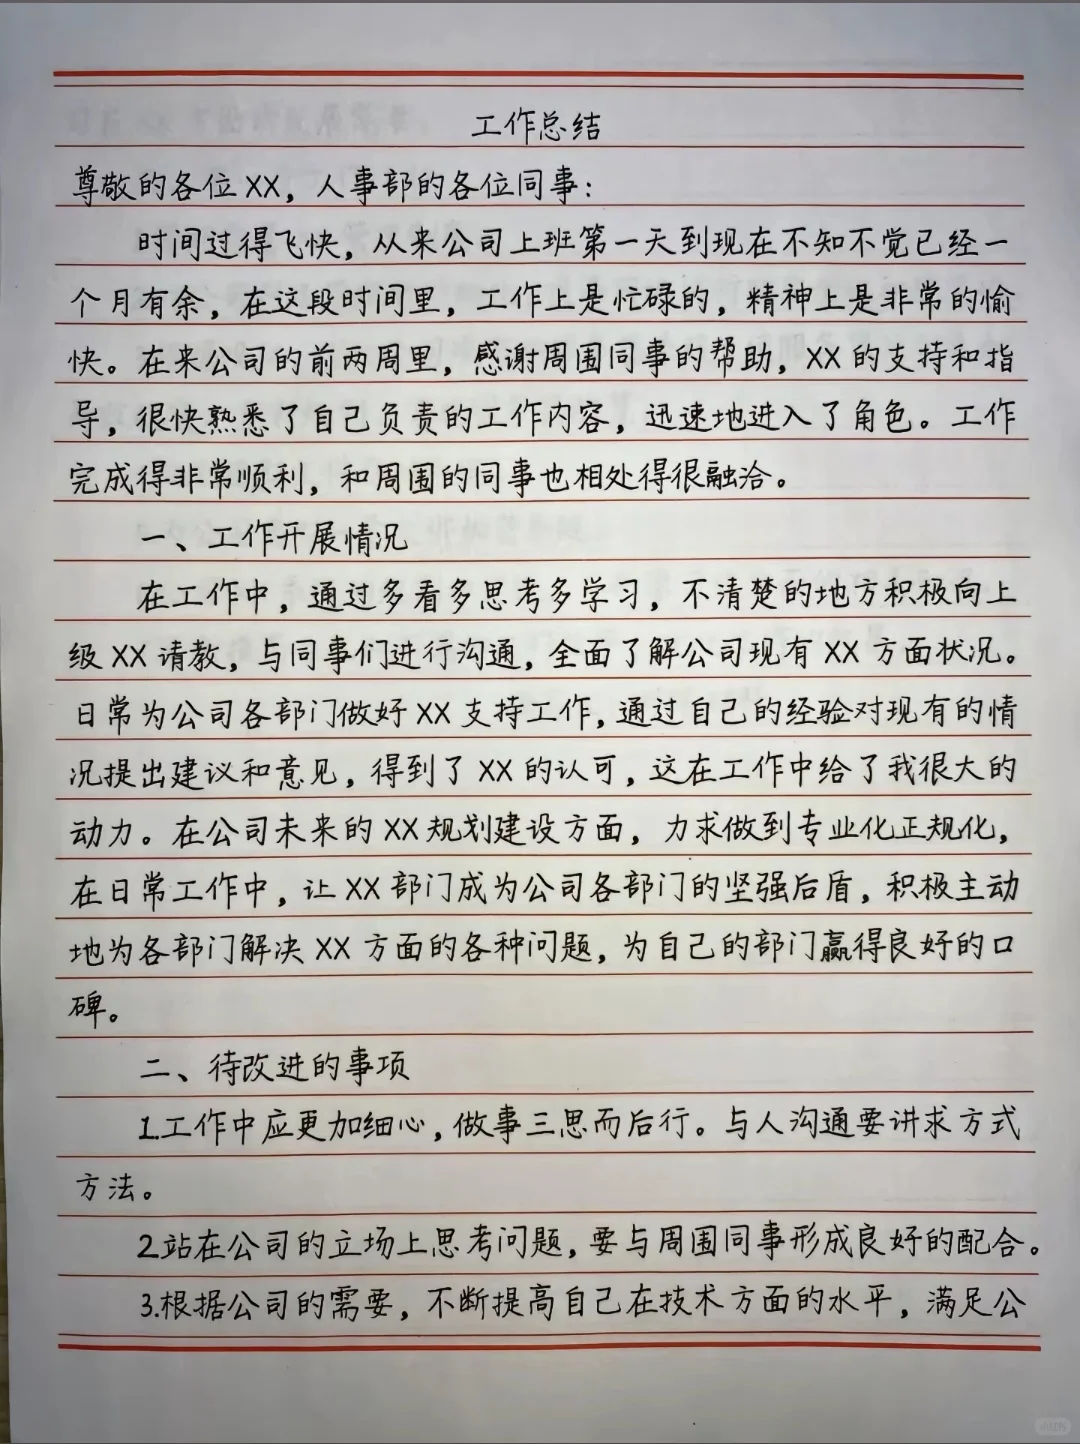 工作总结
尊敬的各位XX，人事部的各位同事：
时间过得飞快，从来公司上班第一天到现在不知不觉已经一
个月有余，在这段时间里，工作上是忙碌的，精神上是非常的愉
快。在来公司的前两周里，感谢周围同事的帮助，XX的支持和指
导，很快熟悉了自己负责的工作内容，迅速地进入了角色。工作
完成得非常顺利，和周围的同事也相处得很融洽。
一、工作开展情况
在工作中，通过多看多思考多学习，不清楚的地方积极向上
级XX请教，与同事们进行沟通，全面了解公司现有XX方面状况。
日常为公司各部门做好XX支持工作，通过自己的经验对现有的情
况提出建议和意见，得到了XX的认可，这在工作中给了我很大的
动力。在公司未来的XX规划建设方面，力求做到专业化正规化，
在日常工作中，让XX部门成为公司各部门的坚强后盾，积极主动
地为各部门解决XX方面的各种问题，为自己的部门赢得良好的口
碑。
二、待改进的事项
1.工作中应更加细心，做事三思而后行。与人沟通要讲求方式
方法。
2.站在公司的立场上思考问题，要与周围同事形成良好的配合。
3.根据公司的需要，不断提高自己在技术方面的水平，满足公
小红书